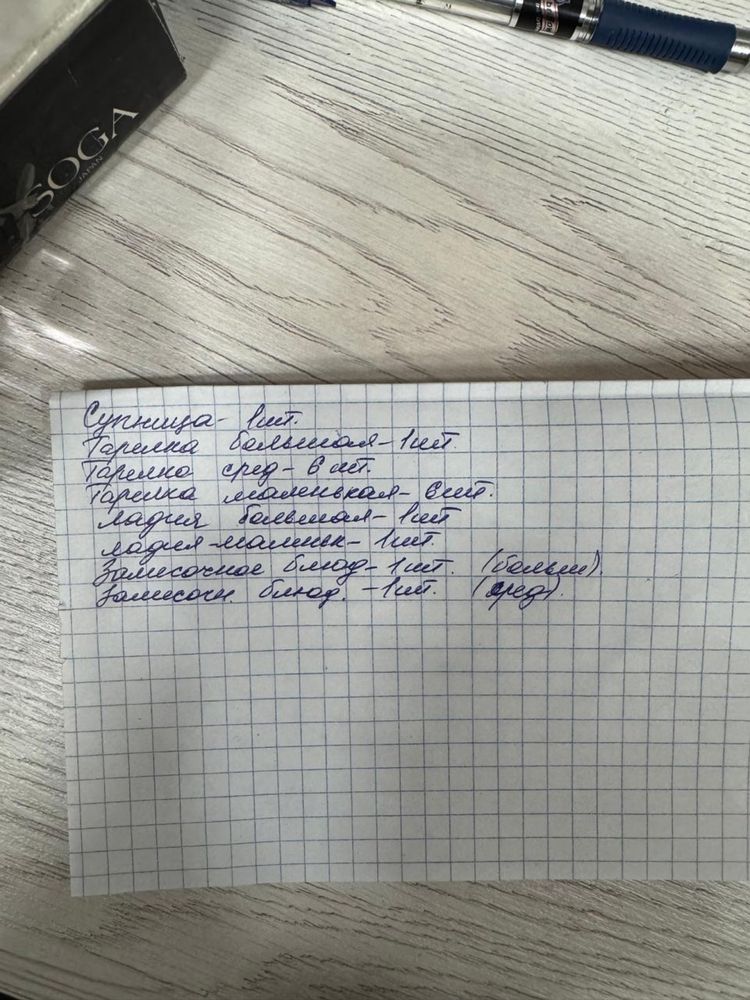 SOGA
JAPAN
Супница- 1шт.
Тарелка большая- 1шт
Тарелка сред- 6 шт.
Тарелка маленькая- 6шт.
ладия большая- 1шт
ладия-маленьк- 1шт.
Замесочное блюд- 1шт. (больш).
Замесочн. блюд. -1шт. (сред).